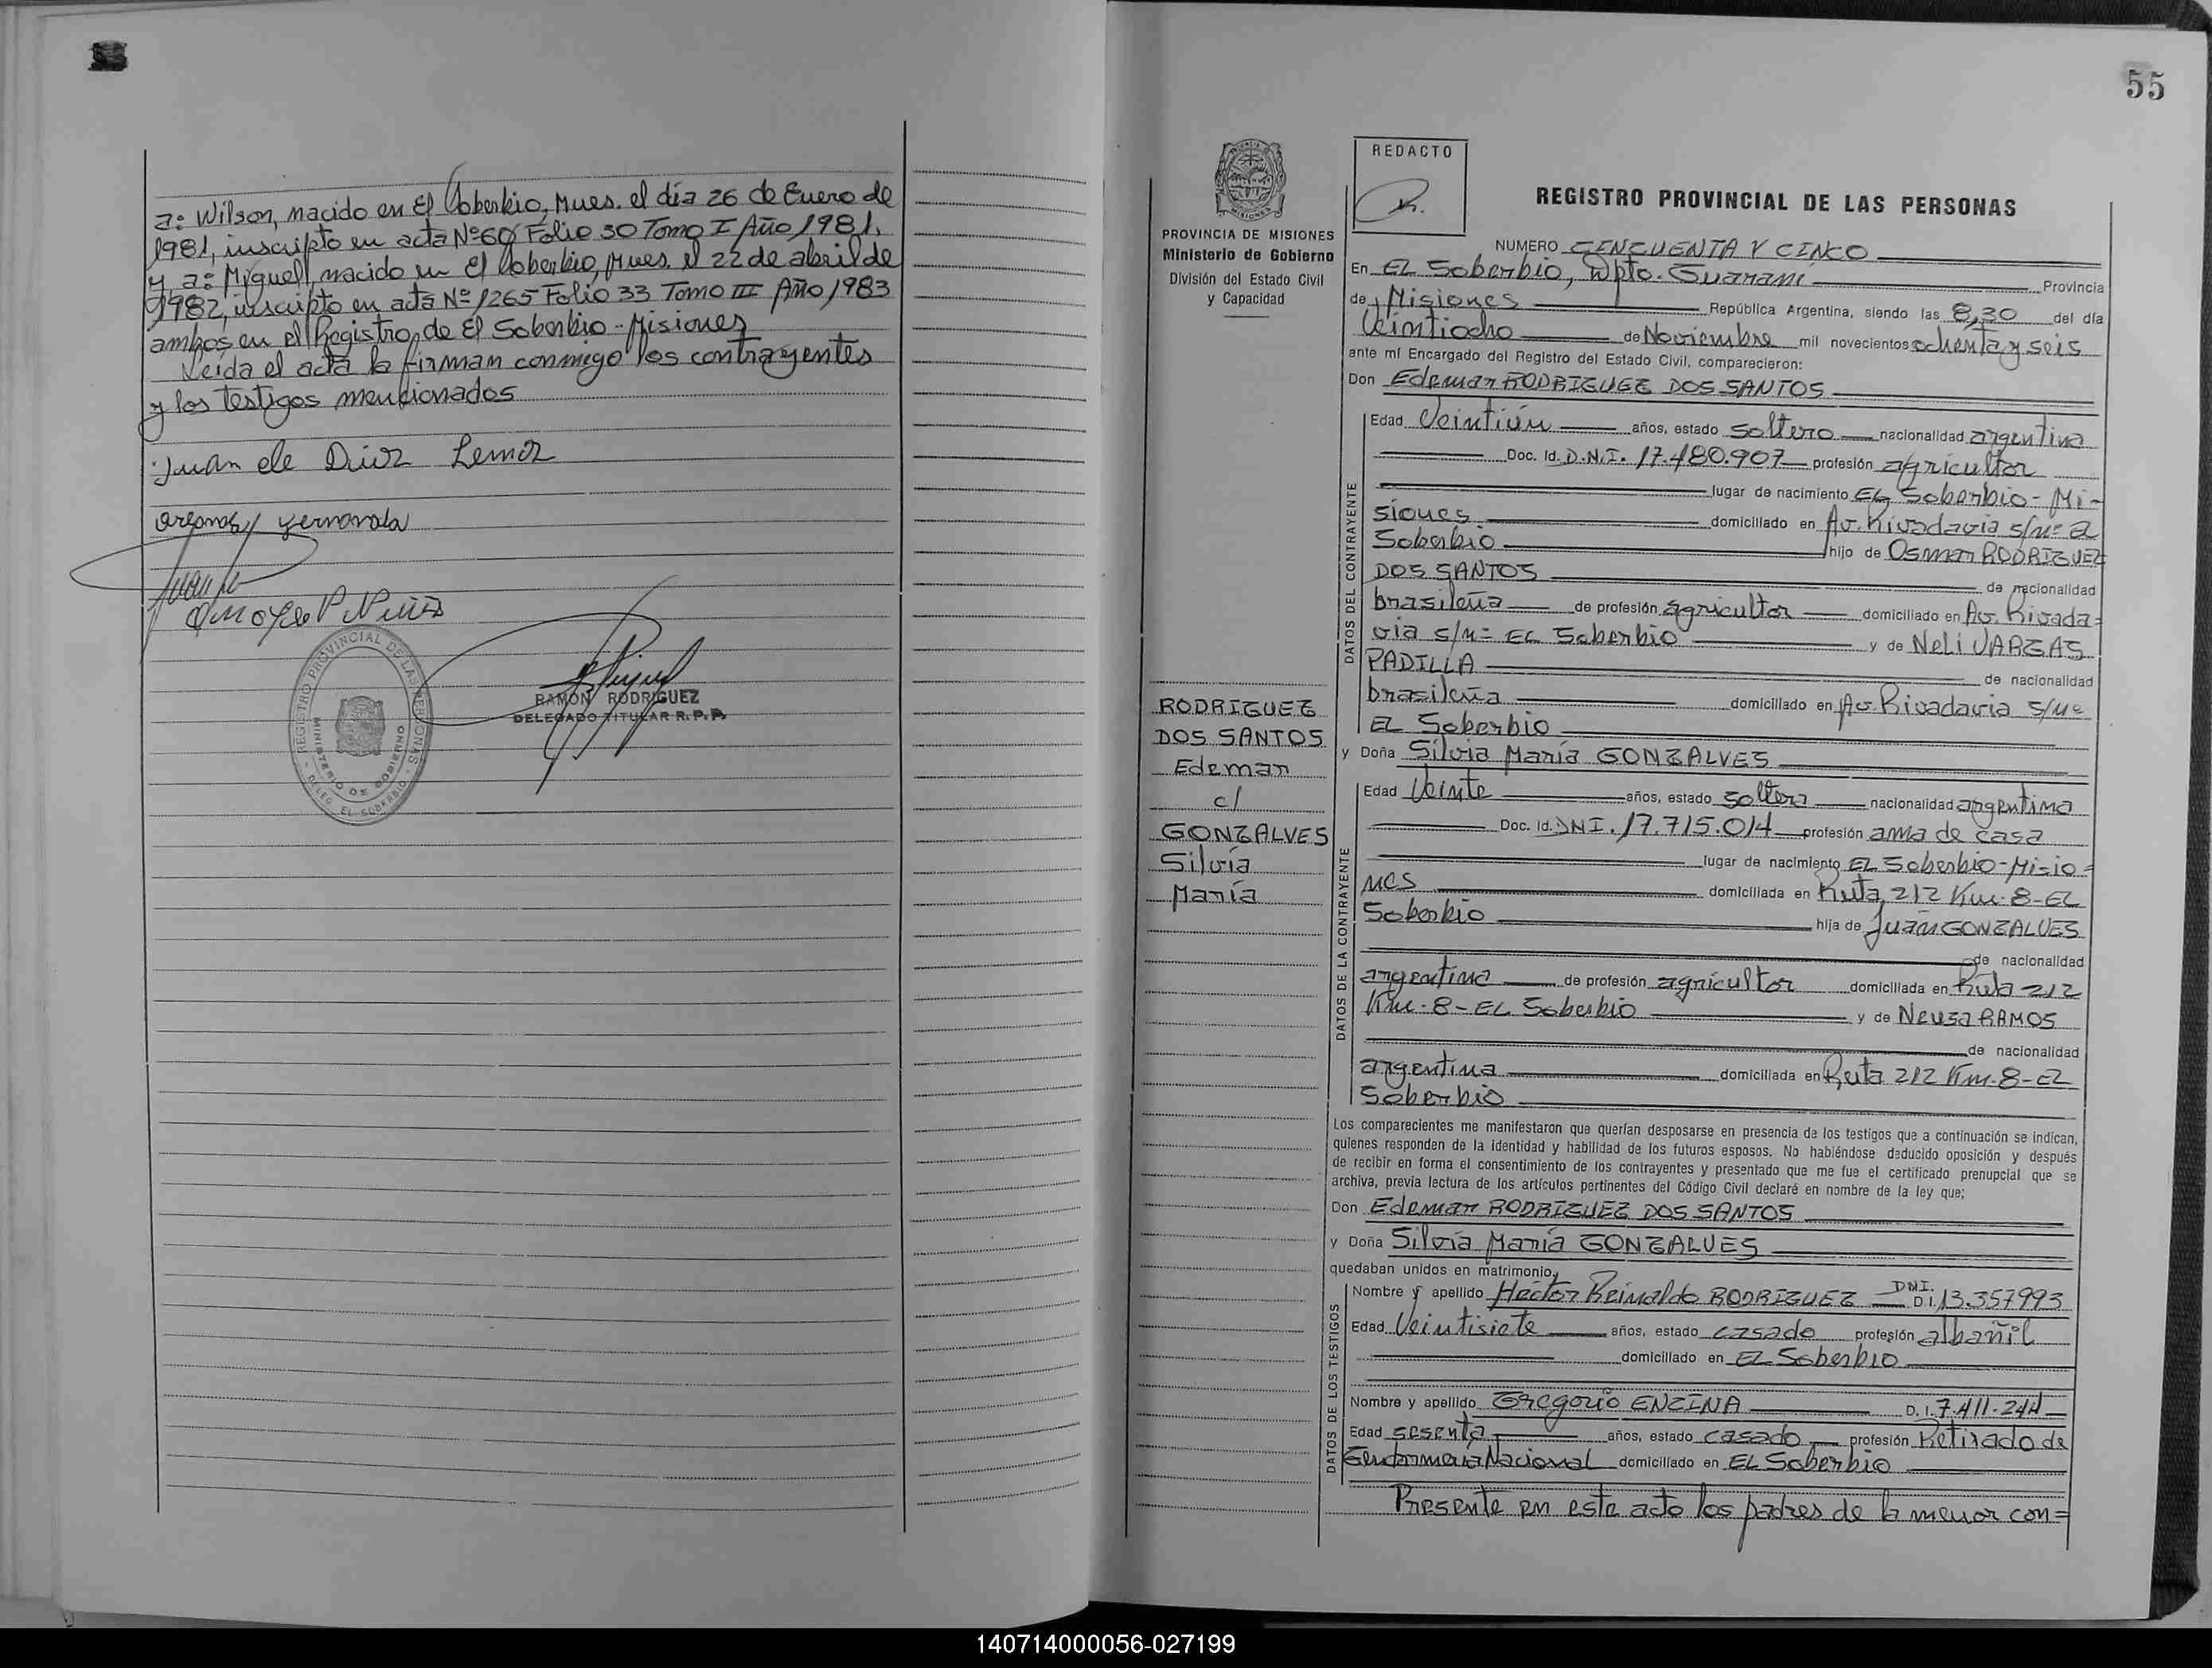 a: Wilson, nacido en El Soberbio, Mnes. el día 26 de Enero de
1981, inscripto en acta Nº60 Folio 30 Tomo I Año 1981.
y a: Miguel, nacido en El Soberbio, Mnes. el 22 de abril de
1982, inscripto en acta Nº 1265 Folio 33 Tomo III Año 1983
ambos en el Registro de El Soberbio - Misiones
Leida el acta la firman conmigo los contrayentes
y los testigos mencionados
Juan de
RAMON RODRIGUEZ
DELEGADO TITULAR R.P.P.
REGISTRO PROVINCIAL DE LAS PERSONAS
MINISTERIO DE GOBIERNO
DELEG. EL SOBERBIO
55
REDACTO
REGISTRO PROVINCIAL DE LAS PERSONAS
MISIONES
PROVINCIA DE MISIONES
Ministerio de Gobierno
División del Estado Civil
y Capacidad
NUMERO CINCUENTA Y CINCO
En EL Soberbio, Dpto. Guaraní Provincia
de Misiones República Argentina, siendo las 8,30 del día
Veintiocho de Noviembre mil novecientos ochenta y seis
ante mí Encargado del Registro del Estado Civil, comparecieron:
Don Edemar RODRIGUEZ DOS SANTOS
DATOS DEL CONTRAYENTE
Edad Veintiún años, estado soltero nacionalidad argentina
Doc. Id. D.N.I. 17.480.907 profesión agricultor
lugar de nacimiento EL Soberbio - Mi-
siones domiciliado en Av. Rivadavia s/nº El
Soberbio hijo de Osmar RODRIGUEZ
DOS SANTOS de nacionalidad
brasileña de profesión agricultor domiciliado en Av. Rivada=
via s/nº EL Soberbio y de Neli VARGAS
PADILLA de nacionalidad
brasileña domiciliado en Av. Rivadavia s/nº
EL Soberbio
RODRIGUEZ
DOS SANTOS
Edemar
c/
GONZALVES
Silvia
María
y Doña Silvia María GONZALVES
DATOS DE LA CONTRAYENTE
Edad Veinte años, estado soltera nacionalidad argentina
Doc. Id. DNI. 17.715.014 profesión ama de casa
lugar de nacimiento EL Soberbio - Misio=
nes domiciliada en Ruta 212 Km. 8 - EL
Soberbio hija de Juan GONZALVES
de nacionalidad
argentina de profesión agricultor domiciliada en Ruta 212
Km. 8 - EL Soberbio y de Neusa RAMOS
de nacionalidad
argentina domiciliada en Ruta 212 Km. 8 - EL
Soberbio
Los comparecientes me manifestaron que querían desposarse en presencia de los testigos que a continuación se indican,
quienes responden de la identidad y habilidad de los futuros esposos. No habiéndose deducido oposición y después
de recibir en forma el consentimiento de los contrayentes y presentado que me fue el certificado prenupcial que se
archiva, previa lectura de los artículos pertinentes del Código Civil declaré en nombre de la ley que;
Don Edemar RODRIGUEZ DOS SANTOS
y Doña Silvia María GONZALVES
quedaban unidos en matrimonio.
DATOS DE LOS TESTIGOS
Nombre y apellido Héctor Reinaldo RODRIGUEZ DNI. D.I. 13.357993
Edad Veintisiete años, estado casado profesión albañil
domiciliado en EL Soberbio
Nombre y apellido Gregorio ENZINA D.I. 7.411.244
Edad sesenta años, estado casado profesión Retirado de
Gendarmeria Nacional domiciliado en EL Soberbio
Presente en este acto los padres de la menor con=
140714000056-027199